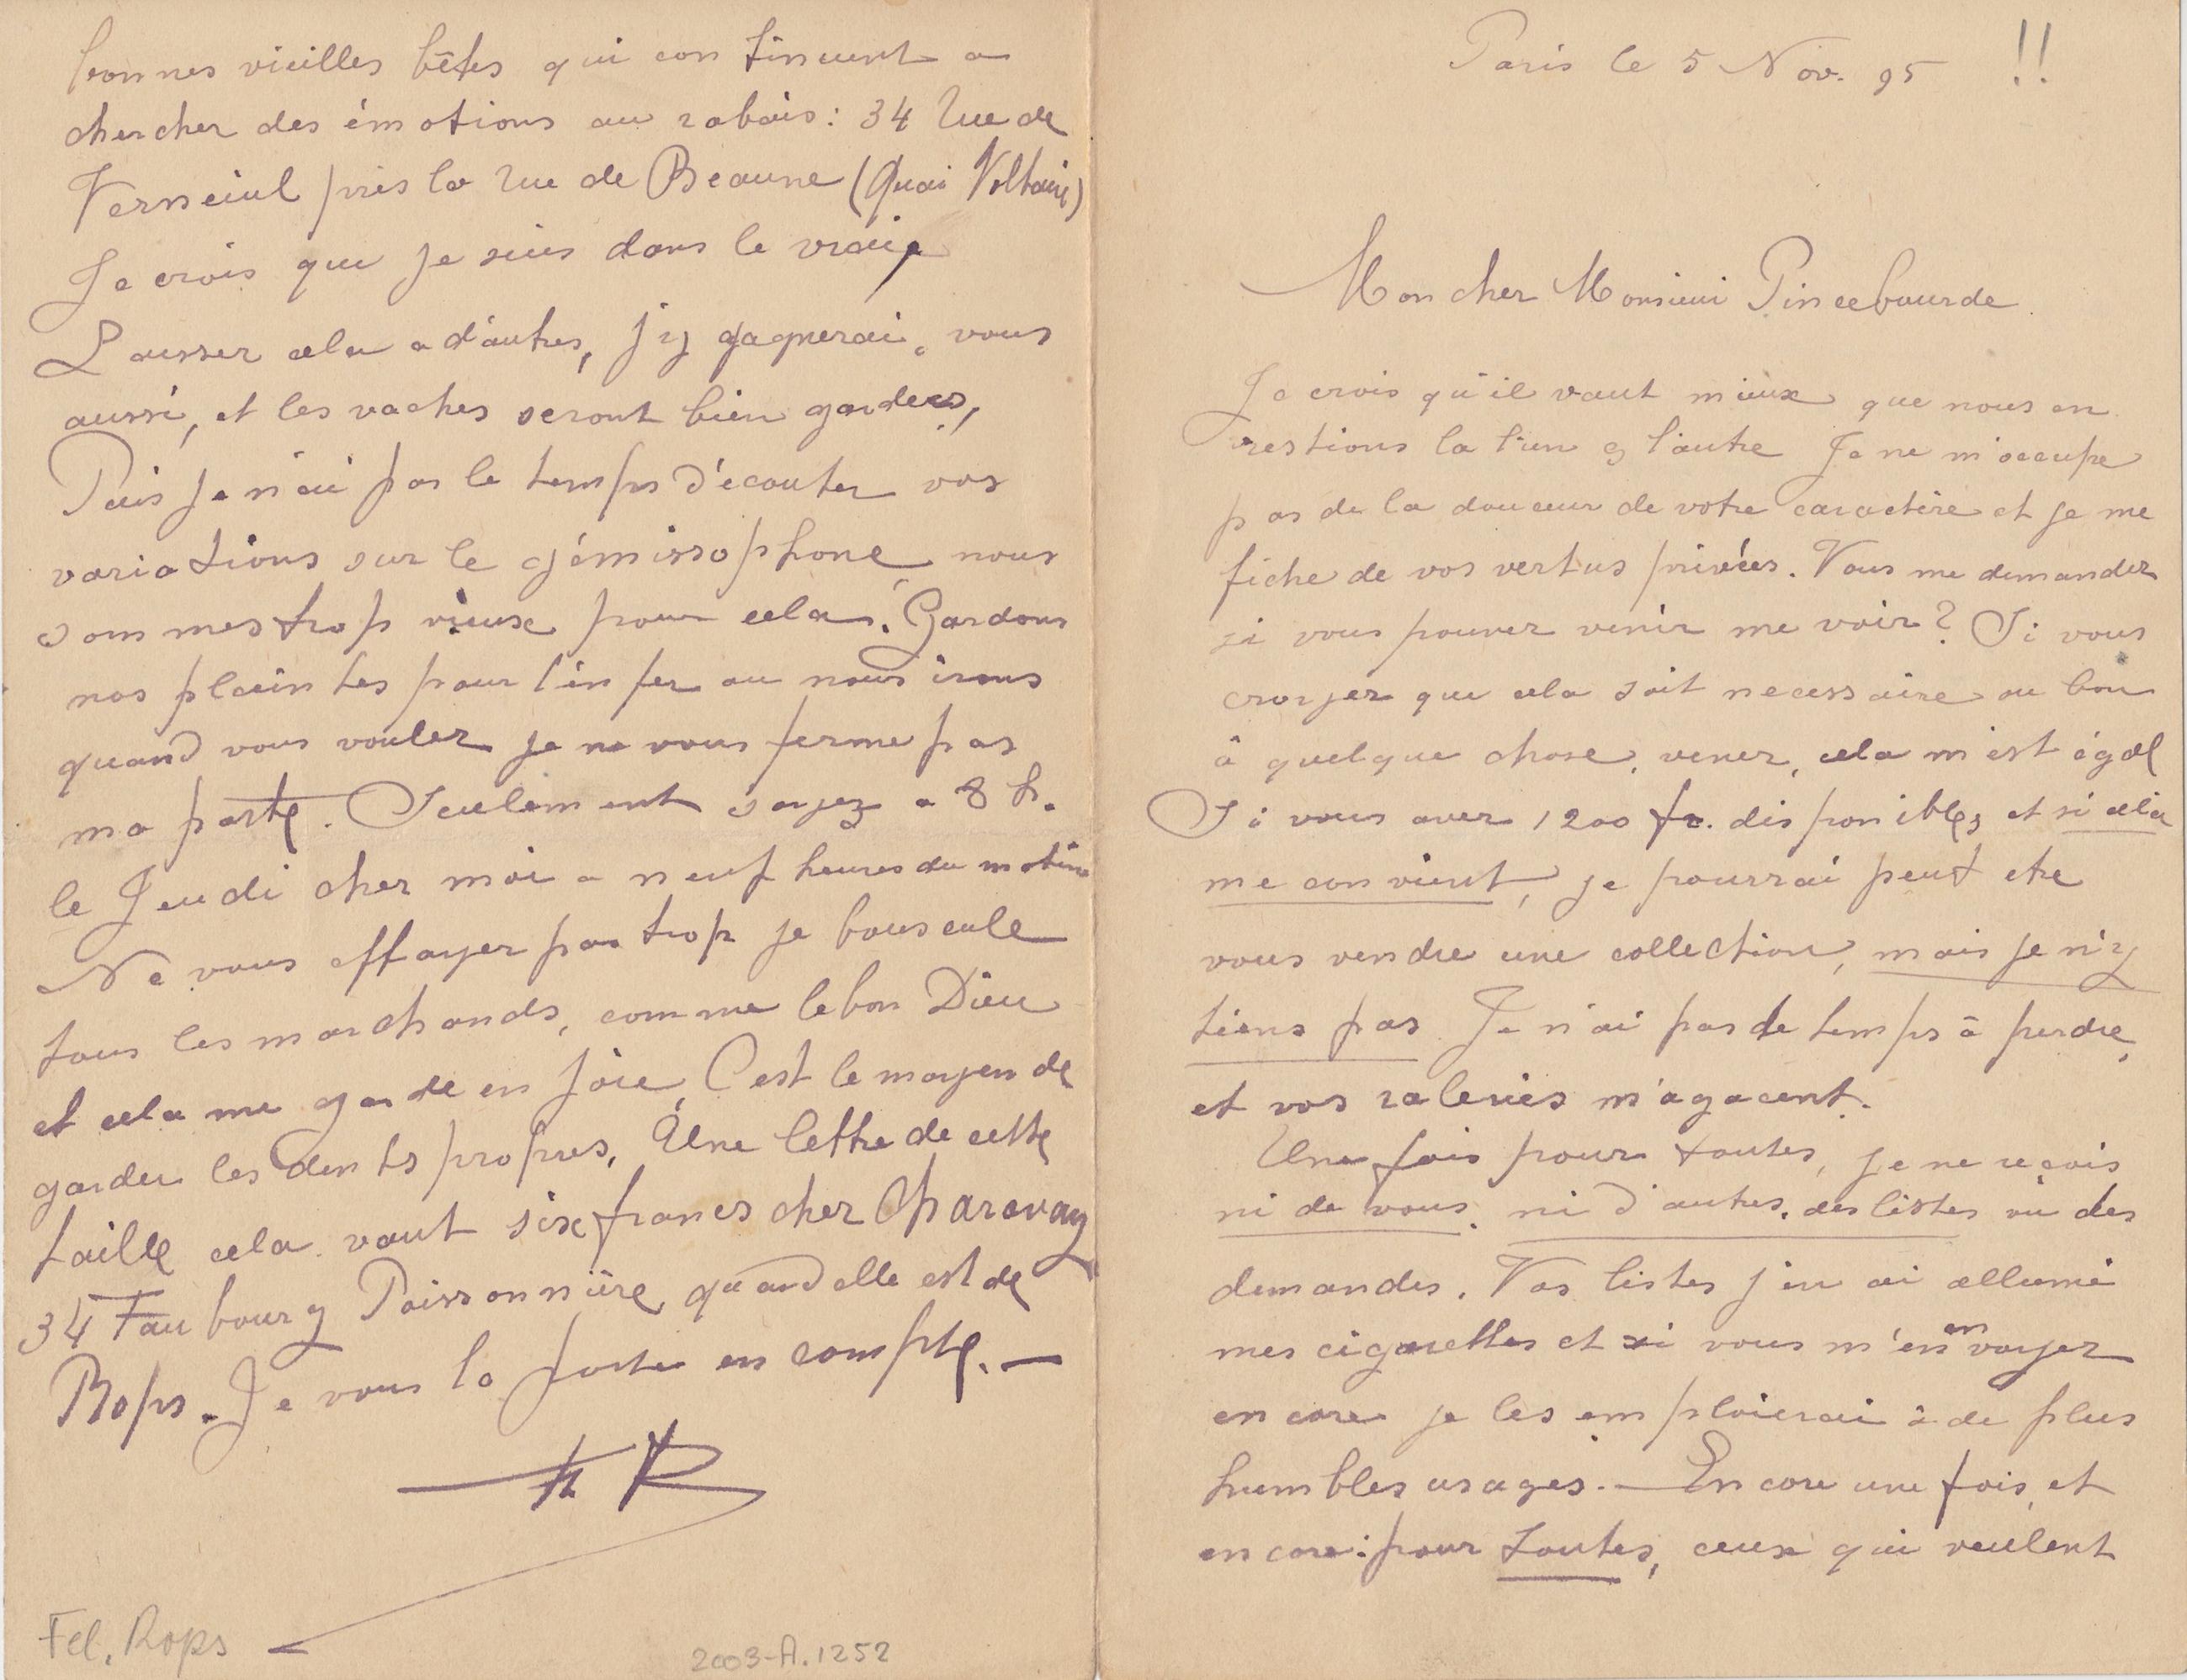 Paris le 5 Nov. 95 !!
Mon cher Monsieur Pincebourde
Je crois qu'il vaut mieux que nous en
restions la l'un & l'autre Je ne m'occupe
pas de la douceur de votre caractère et je me
fiche de vos vertus privées. Vous me demandez
si vous pouvez venir me voir? Si vous
croyez que cela soit necessaire ou bon
à quelque chose, venez, cela m'est égal
Si vous avez 1200 fr. disponibles, et si cela
me convient, je pourrai peut etre
vous vendre une collection, mais je n'y
tiens pas Je n'ai pas de temps à perdre,
et vos raleries m'agacent.
Une fois pour toutes, je ne reçois
ni de vous, ni d'autres, des listes où des
demandes. Vos listes j'en ai allumé
mes cigarettes et si vous m'en envoyez
encore je les emploierai à de plus
humbles usages. — Encore une fois, et
encore: pour toutes, ceux qui veulent
bonnes vieilles bêtes qui continuent a
chercher des émotions au rabais: 34 Rue de
Verneiul près la rue de Beaune (Quai Voltaire)
Je crois que je suis dans le vrai,
Laissez cela a d'autres, j'y gagnerai, vous
aussi, et les vaches seront bien gardées,
Puis je n'ai pas le temps d'écouter vos
variations sur le gémissophone, nous
sommes trop vieux pour cela. Gardons
nos plaintes pour l'enfer ou nous irons
quand vous voulez je ne vous ferme pas
ma porte. Seulement soyez a 8 h.
le Jeudi chez moi a neuf heures du matin
Ne vous effayez pas trop je bouscule
tous les marchands, comme le bon Dieu
et cela me garde en joie, C'est le moyen de
garder les dents propres. Une lettre de cette
taille cela vaut six francs chez Charavay
34 Faubourg Poissonnière, quand elle est de
Rops. Je vous la porte en compte. —
FR
Fel. Rops
2003-A.1252